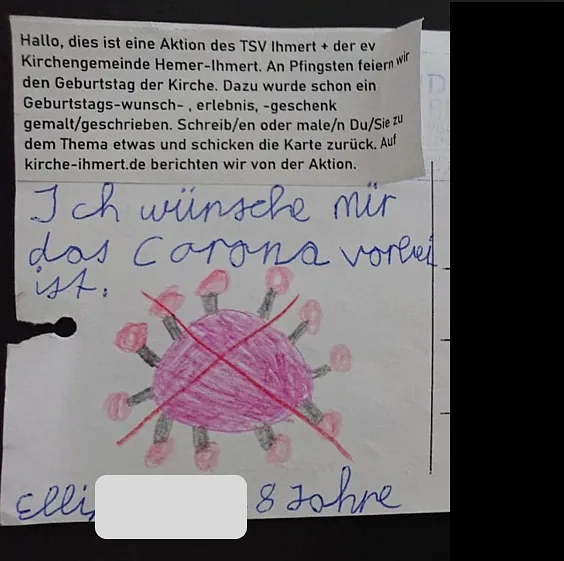 Hallo, dies ist eine Aktion des TSV Ihmert + der ev
Kirchengemeinde Hemer-Ihmert. An Pfingsten feiern wir
den Geburtstag der Kirche. Dazu wurde schon ein
Geburtstags-wunsch- , erlebnis, -geschenk
gemalt/geschrieben. Schreib/en oder male/n Du/Sie zu
dem Thema etwas und schicken die Karte zurück. Auf
kirche-ihmert.de berichten wir von der Aktion.
Ich wünsche mir
das Corona vorbei
ist.
Elli 8 Jahre